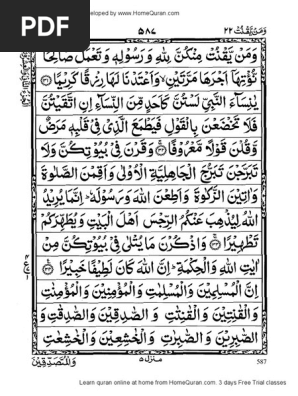 PDF
eloped by www.HomeQuran.com
وَمَنْ يَّقْنُتْ ٢٢
٥٨٤
وَمَنْ يَّقْنُتْ مِنْكُنَّ لِلّٰهِ وَرَسُوْلِهٖ وَتَعْمَلْ صَالِحًا
نُّؤْتِهَآ اَجْرَهَا مَرَّتَيْنِ ۙ وَاَعْتَدْنَا لَهَا رِزْقًا كَرِيْمًا ﴿٣١﴾
يٰنِسَآءَ النَّبِيِّ لَسْتُنَّ كَاَحَدٍ مِّنَ النِّسَآءِ اِنِ اتَّقَيْتُنَّ
فَلَا تَخْضَعْنَ بِالْقَوْلِ فَيَطْمَعَ الَّذِيْ فِيْ قَلْبِهٖ مَرَضٌ
وَّقُلْنَ قَوْلًا مَّعْرُوْفًا ﴿٣٢﴾ وَقَرْنَ فِيْ بُيُوْتِكُنَّ وَلَا
تَبَرَّجْنَ تَبَرُّجَ الْجَاهِلِيَّةِ الْاُوْلٰى وَاَقِمْنَ الصَّلٰوةَ
وَاٰتِيْنَ الزَّكٰوةَ وَاَطِعْنَ اللّٰهَ وَرَسُوْلَهٗ ؕ اِنَّمَا يُرِيْدُ
اللّٰهُ لِيُذْهِبَ عَنْكُمُ الرِّجْسَ اَهْلَ الْبَيْتِ وَيُطَهِّرَكُمْ
تَطْهِيْرًا ﴿٣٣﴾ وَاذْكُرْنَ مَا يُتْلٰى فِيْ بُيُوْتِكُنَّ مِنْ
اٰيٰتِ اللّٰهِ وَالْحِكْمَةِ ؕ اِنَّ اللّٰهَ كَانَ لَطِيْفًا خَبِيْرًا ﴿٣٤﴾
اِنَّ الْمُسْلِمِيْنَ وَالْمُسْلِمٰتِ وَالْمُؤْمِنِيْنَ وَالْمُؤْمِنٰتِ
وَالْقٰنِتِيْنَ وَالْقٰنِتٰتِ وَالصّٰدِقِيْنَ وَالصّٰدِقٰتِ وَ
الصّٰبِرِيْنَ وَالصّٰبِرٰتِ وَالْخٰشِعِيْنَ وَالْخٰشِعٰتِ
وَالْمُتَصَدِّقِيْنَ
منزل ٥
587
Learn quran online at home from HomeQuran.com. 3 days Free Trial classes